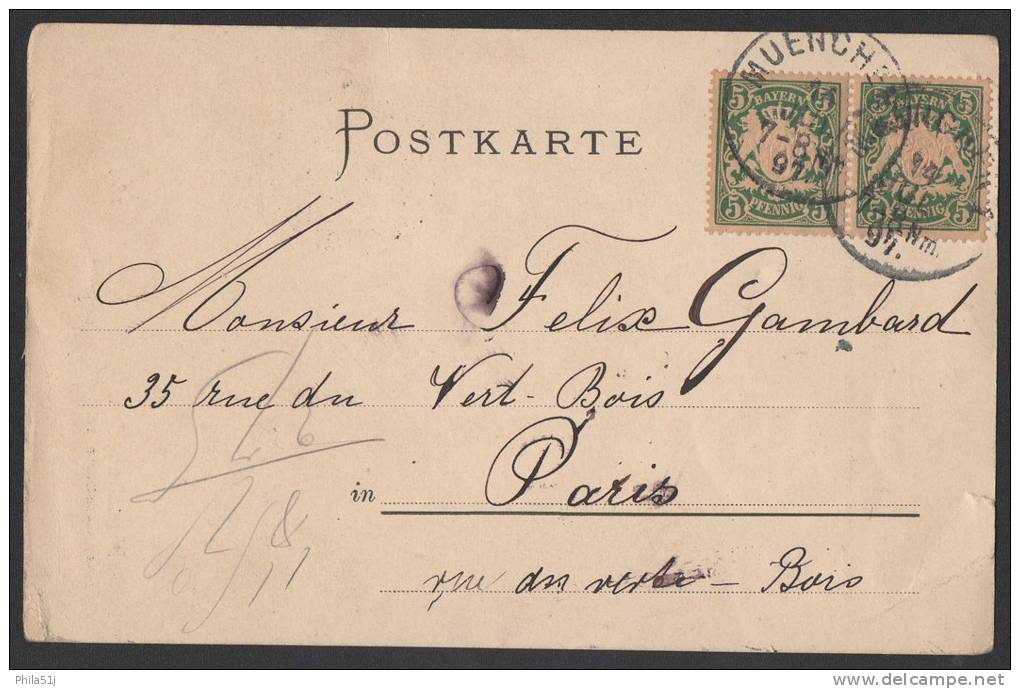 POSTKARTE
MUENCHEN
7-8 Nm.
97.
14
7-8 Nm.
97.
5 BAYERN 5
5 PFENNIG 5
5 BAYERN
5 PFENNIG 5
Monsieur Felix Gambard
35 rue du Vert-Bois
in Paris
rue du verte-Bois
Phila51j
www.delcampe.net